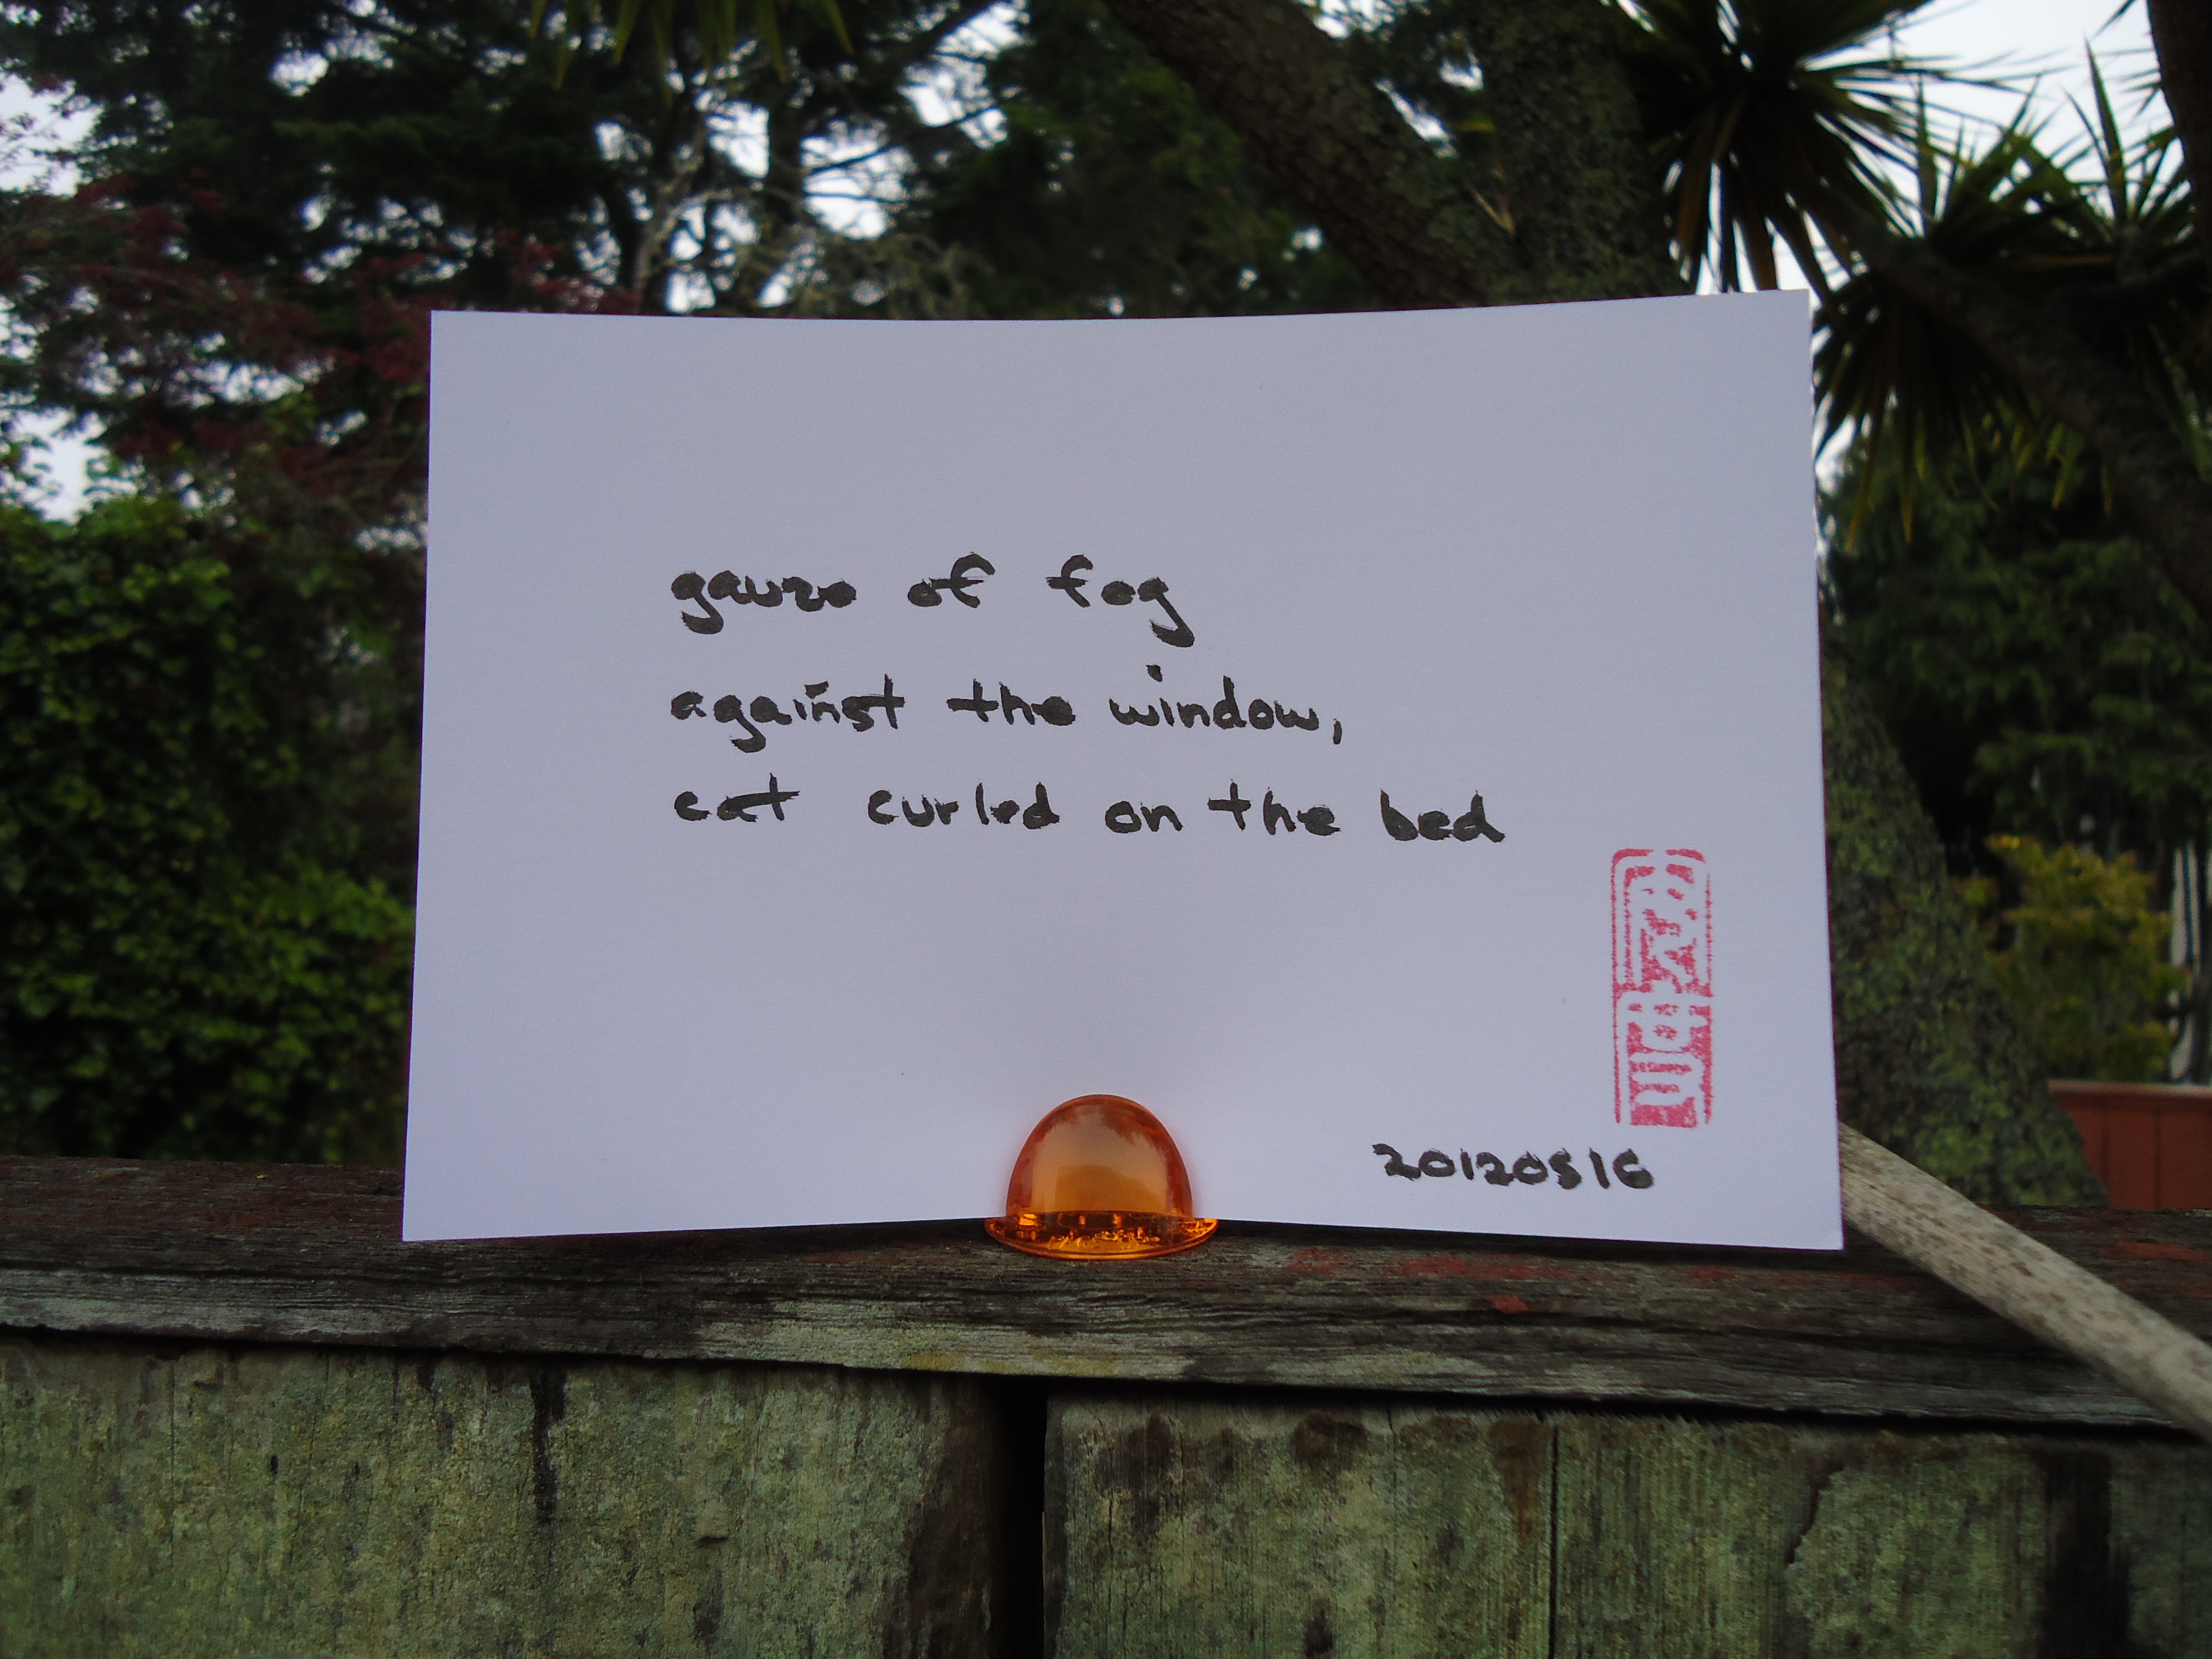 gauze of fog
against the window,
cat curled on the bed
20120516